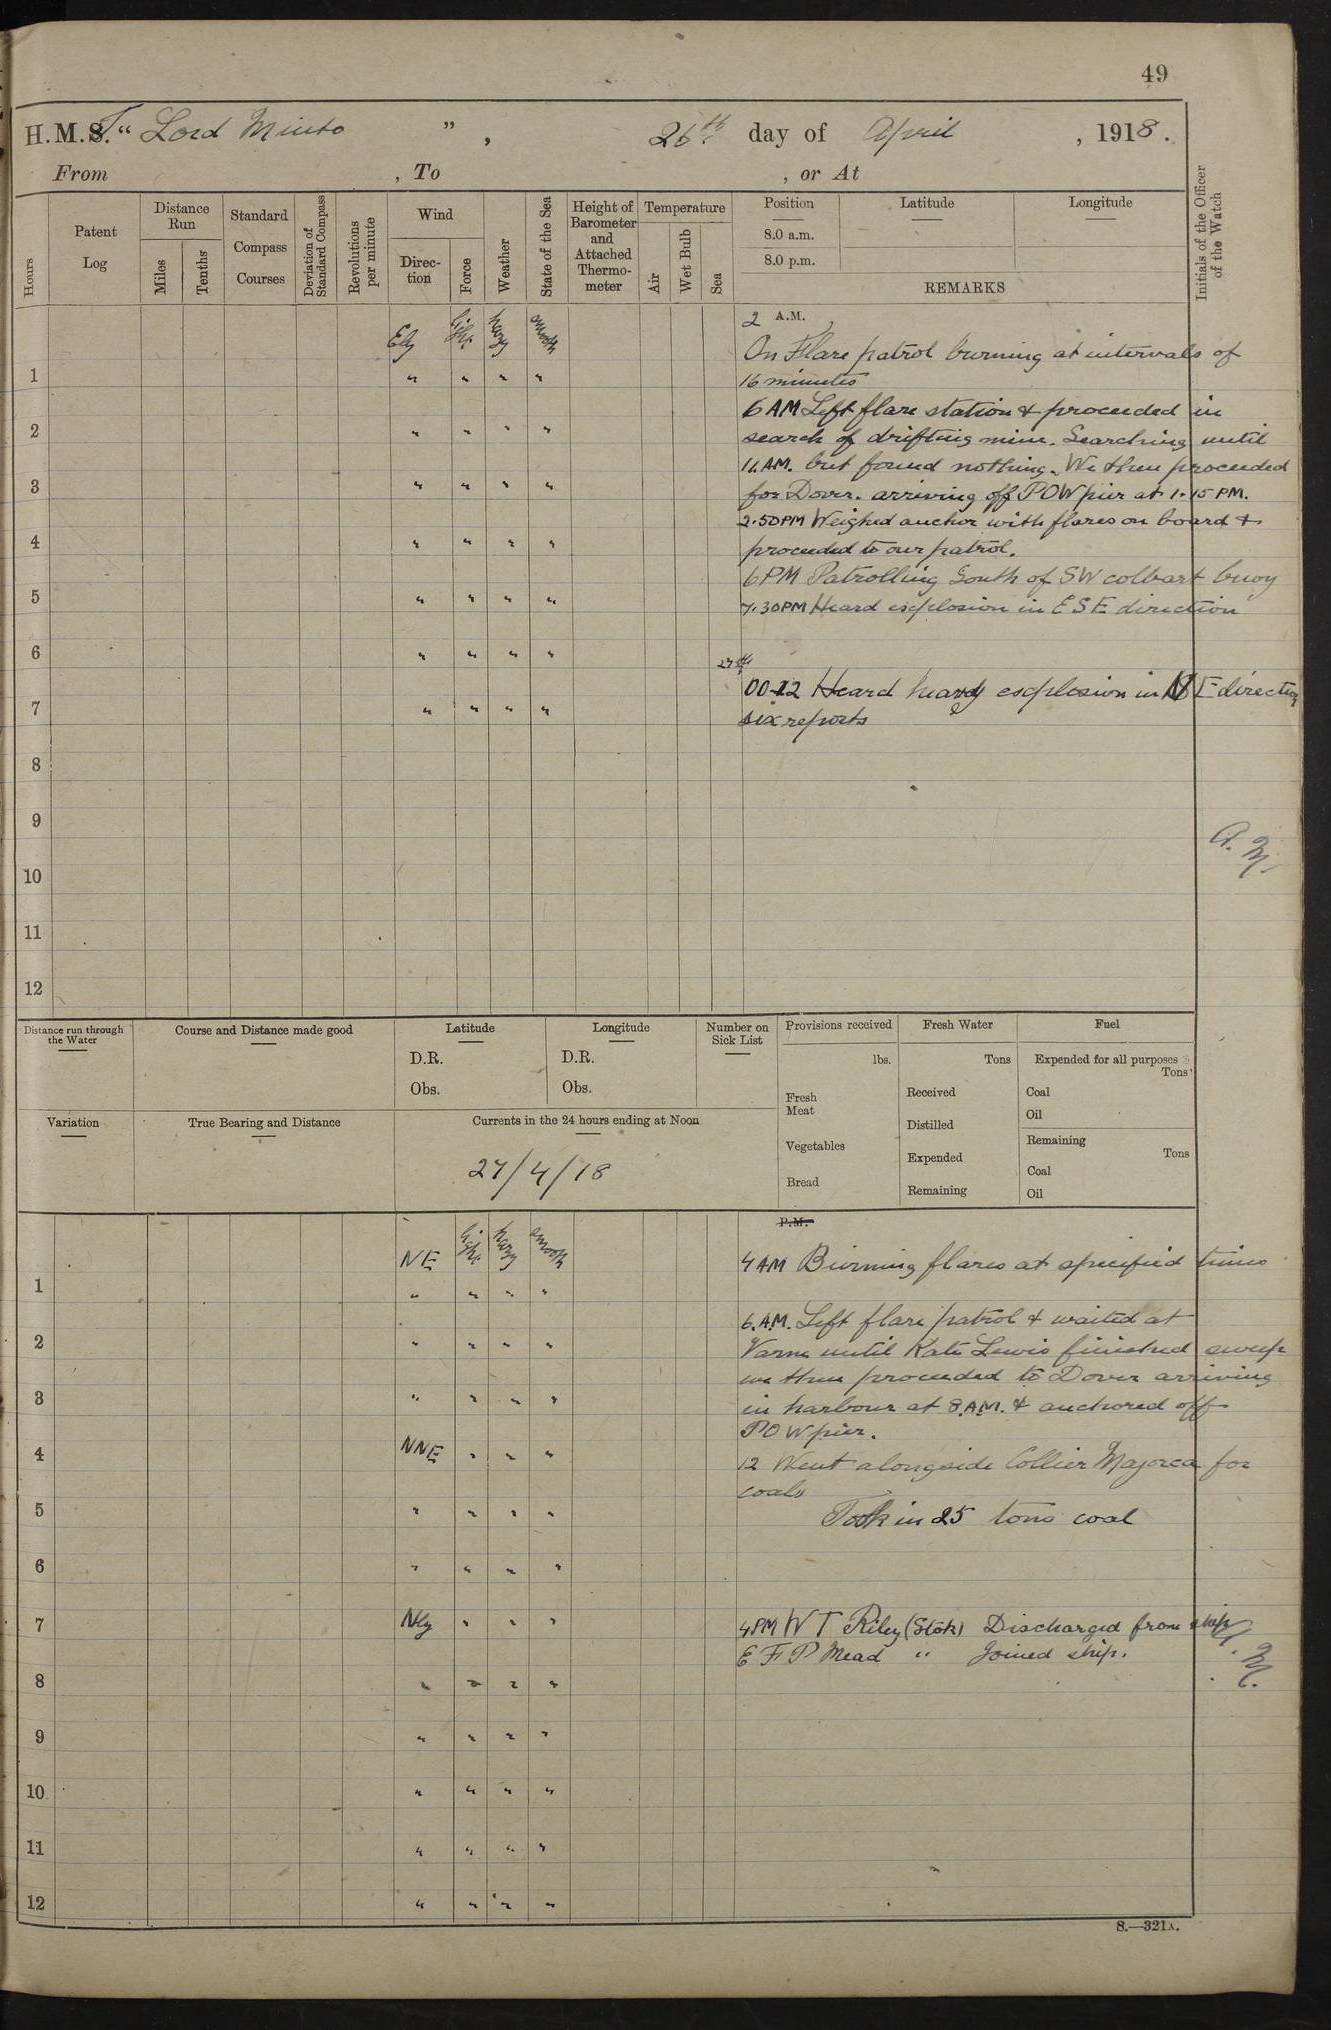 49
H.M.S.T. " Lord Minto " , 26th day of April , 1918.
From , To , or At
Hours
Patent Log
Distance Run
Miles
Tenths
Standard Compass Courses
Deviation of Standard Compass
Revolutions per minute
Wind
Direction
Force
Weather
State of the Sea
Height of Barometer and Attached Thermometer
Temperature
Air
Wet Bulb
Sea
Position
8.0 a.m.
8.0 p.m.
Latitude
Longitude
REMARKS
Initials of the Officer of the Watch
Ely light hazy smooth
2 A.M.
On Flare patrol burning at intervals of
1 " " " " 16 minutes
6 AM Left flare station & proceeded in
2 " " " " search of drifting mine. Searching until
11. AM. but found nothing. We then proceeded
3 " " " " for Dover. arriving off POW pier at 1.15 PM.
2.50 PM Weighed anchor with flares on board &
4 " " " " proceeded to our patrol.
6 PM Patrolling South of SW colbart buoy
5 " " " " 7.30 PM Heard esplosion in ESE direction
6 " " " "
27th
00-12 Heard heavy esplosion in N E direction
7 " " " " six reports
8
9
A. M.
10
11
12
Distance run through the Water
Course and Distance made good
Latitude
D.R.
Obs.
Longitude
D.R.
Obs.
Number on Sick List
Provisions received
lbs.
Fresh Meat
Vegetables
Bread
Fresh Water
Tons
Received
Distilled
Expended
Remaining
Fuel
Expended for all purposes
Tons
Coal
Oil
Remaining
Tons
Coal
Oil
Variation
True Bearing and Distance
Currents in the 24 hours ending at Noon
27/4/18
P.M.
NE light hazy smooth 4 AM Burning flares at specified times
1 " " " "
6. A.M. Left flare patrol & waited at
2 " " " " Varne until Kate Lewis finished sweep
we then proceeded to Dover arriving
3 " " " " in harbour at 8. A.M. & anchored off
POW pier.
4 NNE " " " 12 Went alongside Collier Majorca for
coals
5 " " " " Took in 25 tons coal
6 " " " "
7 Nly " " " 4 PM W T Riley (Stok) Discharged from ship
E F P Mead " Joined ship.
A. M.
8 " " " "
9 " " " "
10 " " " "
11 " " " "
12 " " " "
S.—321A.